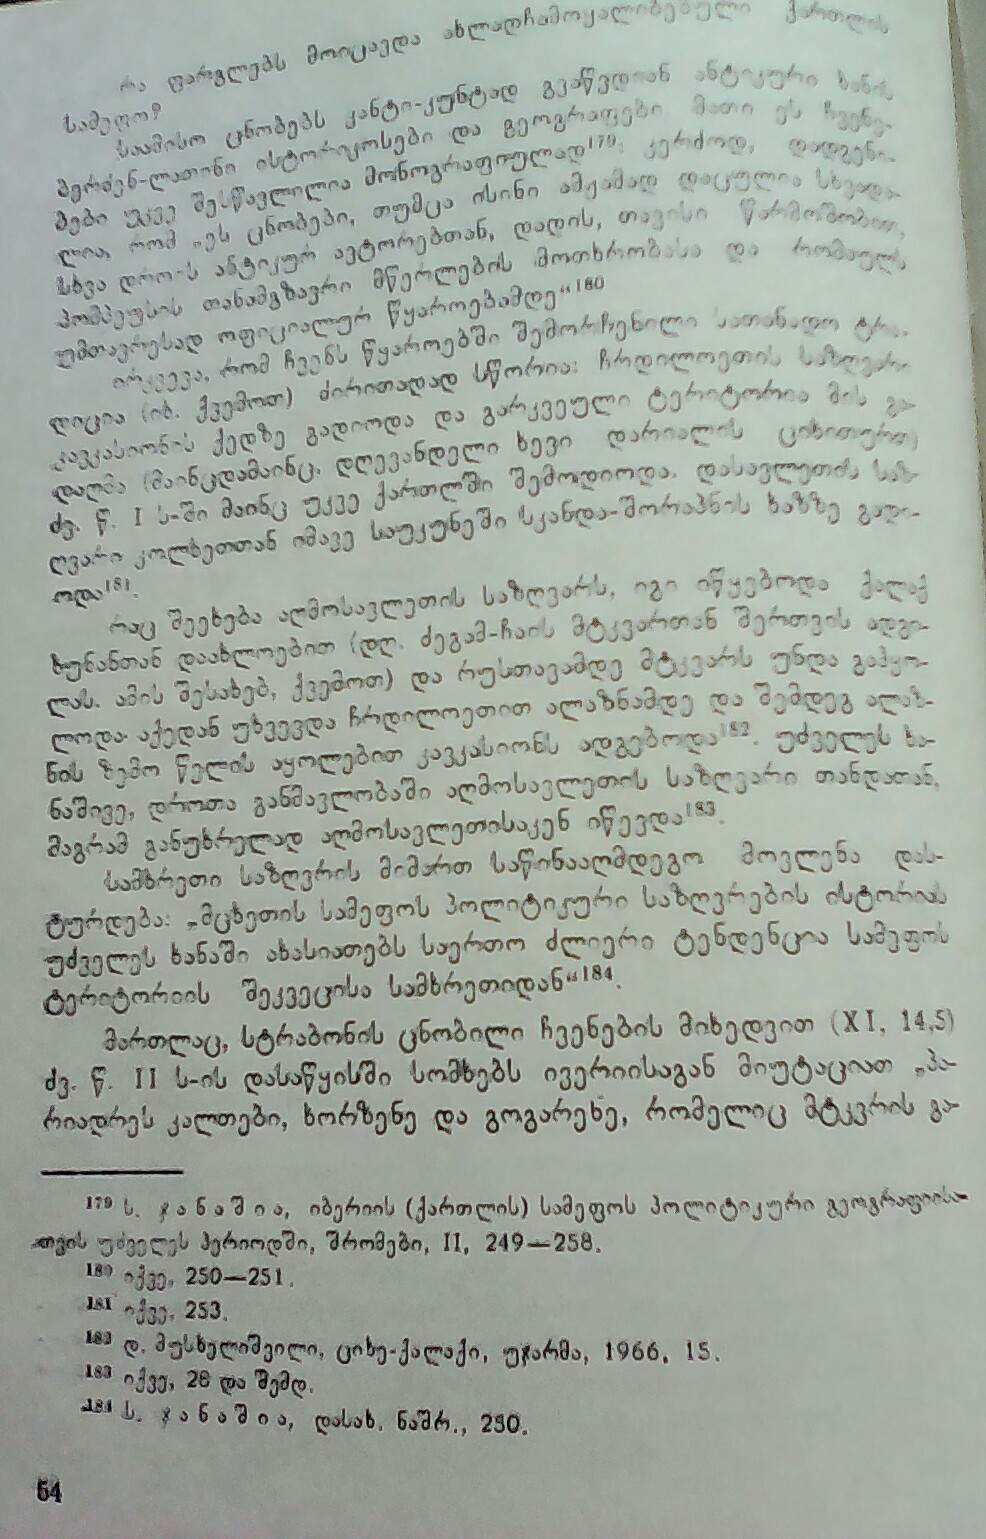 რა ფარგლებს მოიცავდა ახლადჩამოყალიბებული ქართლის
სამეფო?
საამისო ცნობებს კანტი-კუნტად გვაწვდიან ანტიკური ხანის
ბერძენ-ლათინი ისტორიკოსები და გეოგრაფები. მათი ეს ჩვენე-
ბები უკვე შესწავლილია მონოგრაფიულად¹⁷⁹; კერძოდ, დადგენი-
ლია, რომ „ეს ცნობები, თუმცა ისინი ამჟამად დაცულია სხვადა-
სხვა დროის ანტიკურ ავტორებთან, დადის, თავისი წარმოშობით,
პომპეუსის თანამგზავრი მწერლების მოთხრობასა და რომაულს
უმთავრესად ოფიციალურ წყაროებამდე“¹⁸⁰
ირკვევა, რომ ჩვენს წყაროებში შემორჩენილი სათანადო ტრა-
დიცია (იხ. ქვემოთ) ძირითადად სწორია: ჩრდილოეთის საზღვარი
კავკასიონის ქედზე გადიოდა და გარკვეული ტერიტორია მის გა-
დაღმა (მაინცდამაინც, დღევანდელი ხევი დარიალის ციხითურთ)
ძვ. წ. I ს-ში მაინც უკვე ქართლში შემოდიოდა. დასავლეთის საზ-
ღვარი კოლხეთთან იმავე საუკუნეში სკანდა-შორაპნის ხაზზე გადი-
ოდა¹⁸¹.
რაც შეეხება აღმოსავლეთის საზღვარს, იგი იწყებოდა ქალაქ
ხუნანთან დაახლოებით (დღ. ძეგამ-ჩაის მტკვართან შერთვის ადგი-
ლას. ამის შესახებ, ქვემოთ) და რუსთავამდე მტკვარს უნდა გაჰყო-
ლოდა. აქედან უხვევდა ჩრდილოეთით ალაზნამდე და შემდეგ ალაზ-
ნის ზემო წელის აყოლებით კავკასიონს ადგებოდა¹⁸². უძველეს ხა-
ნაშივე, დროთა განმავლობაში აღმოსავლეთის საზღვარი თანდათან,
მაგრამ განუხრელად აღმოსავლეთისაკენ იწევდა¹⁸³.
სამხრეთი საზღვრის მიმართ საწინააღმდეგო მოვლენა დას-
ტურდება: „მცხეთის სამეფოს პოლიტიკური საზღვრების ისტორიას
უძველეს ხანაში ახასიათებს საერთო ძლიერი ტენდენცია სამეფოს
ტერიტორიის შეკვეცისა სამხრეთიდან“¹⁸⁴.
მართლაც, სტრაბონის ცნობილი ჩვენების მიხედვით (XI, 14,5)
ძვ. წ. II ს-ის დასაწყისში სომხებს ივერიისაგან მიუტაციათ „პა-
რიადრეს კალთები, ხორზენე და გოგარენე, რომელიც მტკვრის გა-
¹⁷⁹ ს. ჯანაშია, იბერიის (ქართლის) სამეფოს პოლიტიკური გეოგრაფიისა-
თვის უძველეს პერიოდში, შრომები, II, 249—258.
¹⁸⁰ იქვე, 250—251.
¹⁸¹ იქვე, 253.
¹⁸² დ. მუსხელიშვილი, ციხე-ქალაქი, უჯარმა, 1966, 15.
¹⁸³ იქვე, 28 და შემდ.
¹⁸⁴ ს. ჯანაშია, დასახ. ნაშრ., 250.
54